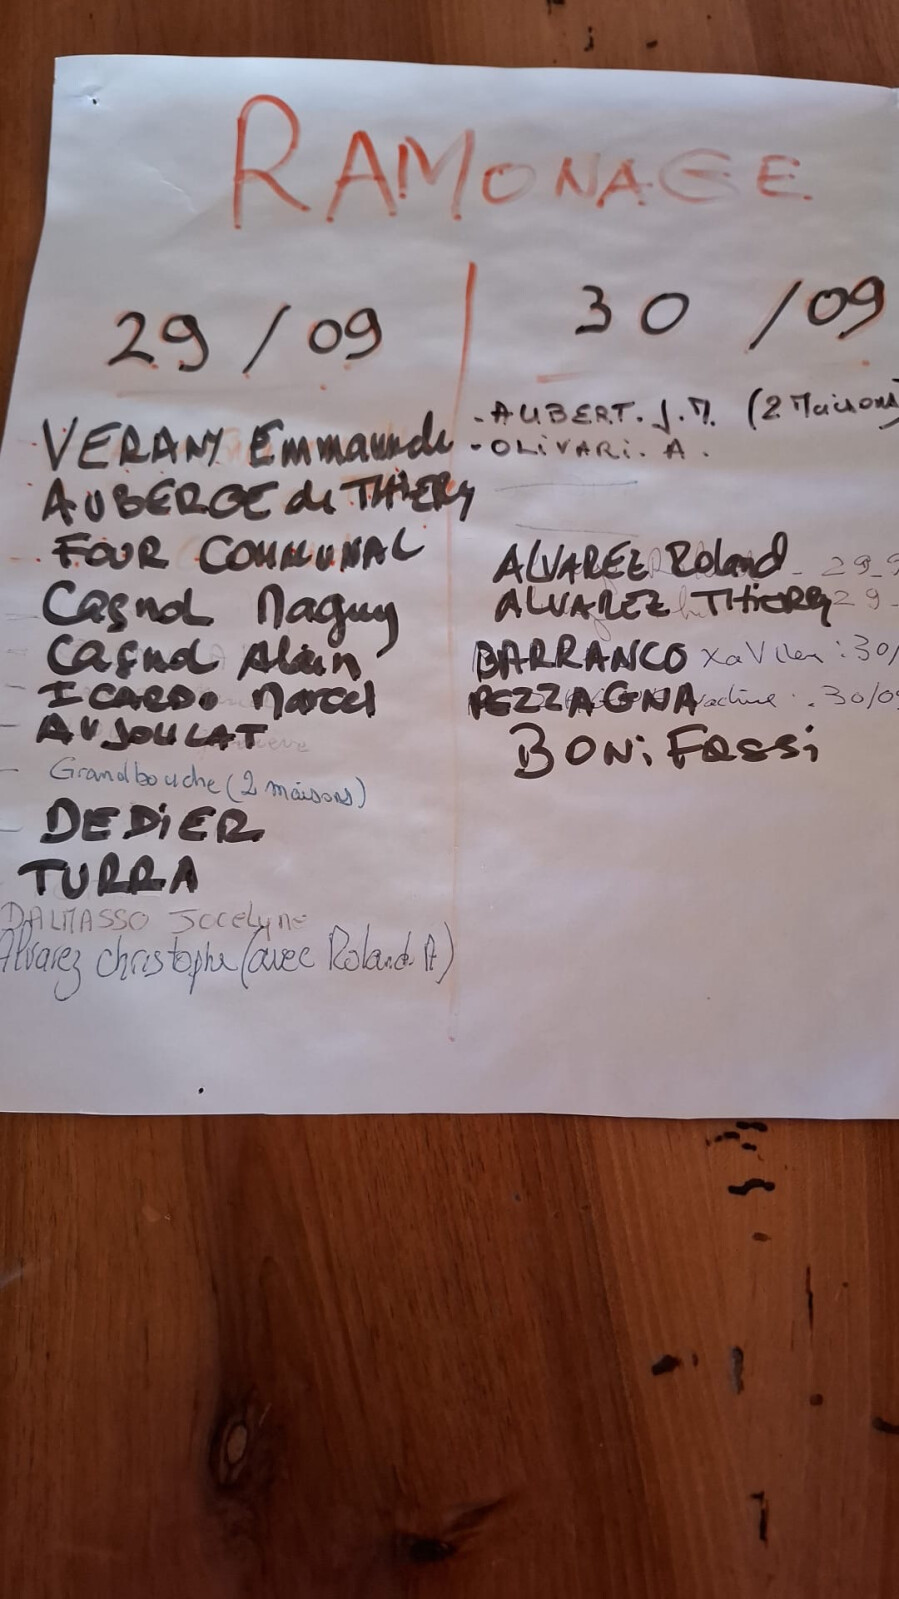 RAMONAGE
29/09
VERANY Emmanuelle
AUBERGE de THIERY
FOUR COMMUNAL
Cagnol Maguy
Cagnol Alain
ICARDO Marcel
AUJOULAT
Grandbouche (2 maisons)
DEDIER
TURRA
DALMASSO Jocelyne
Alvarez christophe (avec Roland. A)
30/09
- AUBERT. J.M. (2 Maisons)
- OLIVARI. A.
ALVAREZ Roland - 29_9
ALVAREZ THierry 29 -
BARRANCO xaVier : 30/
PEZZAGNA : 30/09
BONiFassi